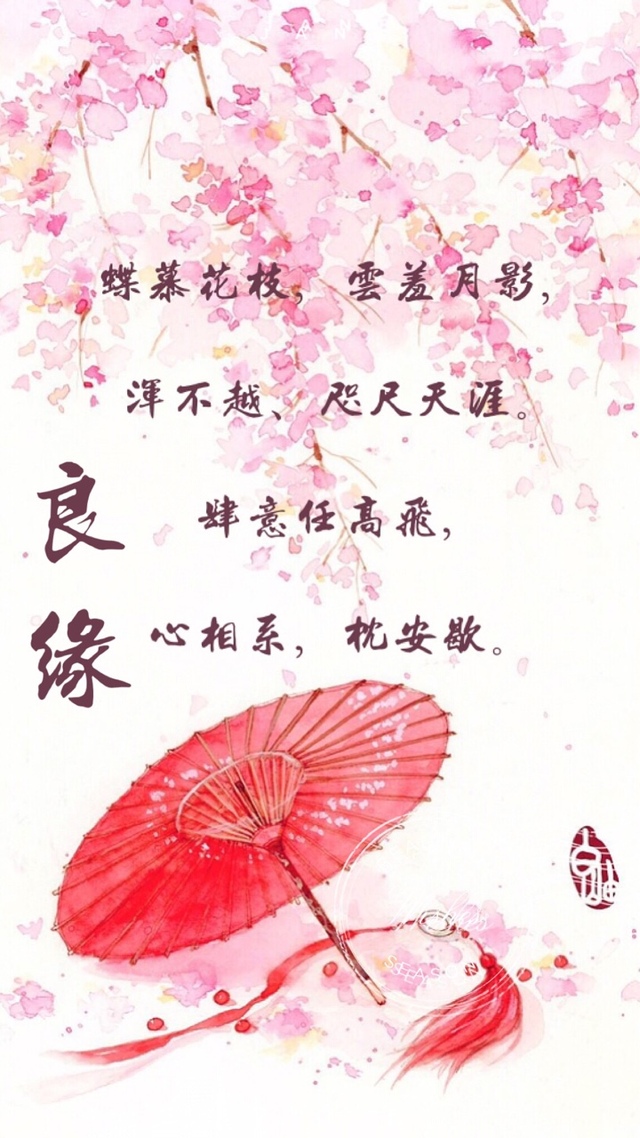 蝶慕花枝，雲羞月影，
渾不越、咫尺天涯。
肆意任高飛，
心相系，枕安歇。
良缘